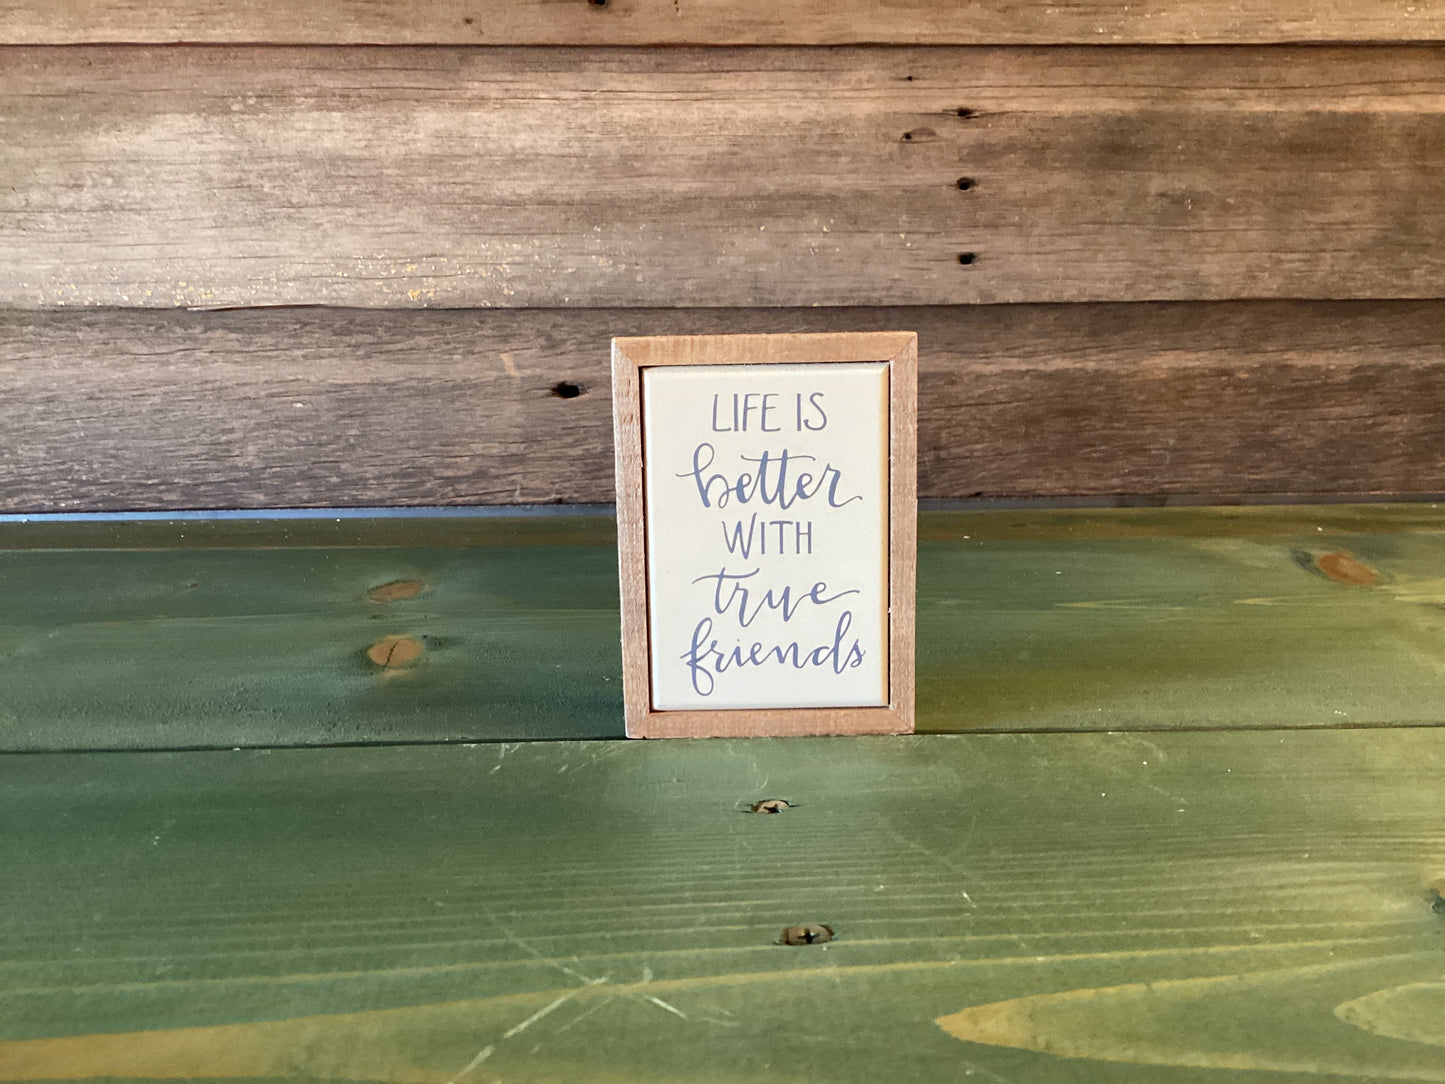 LIFE IS
better
WITH
true
friends